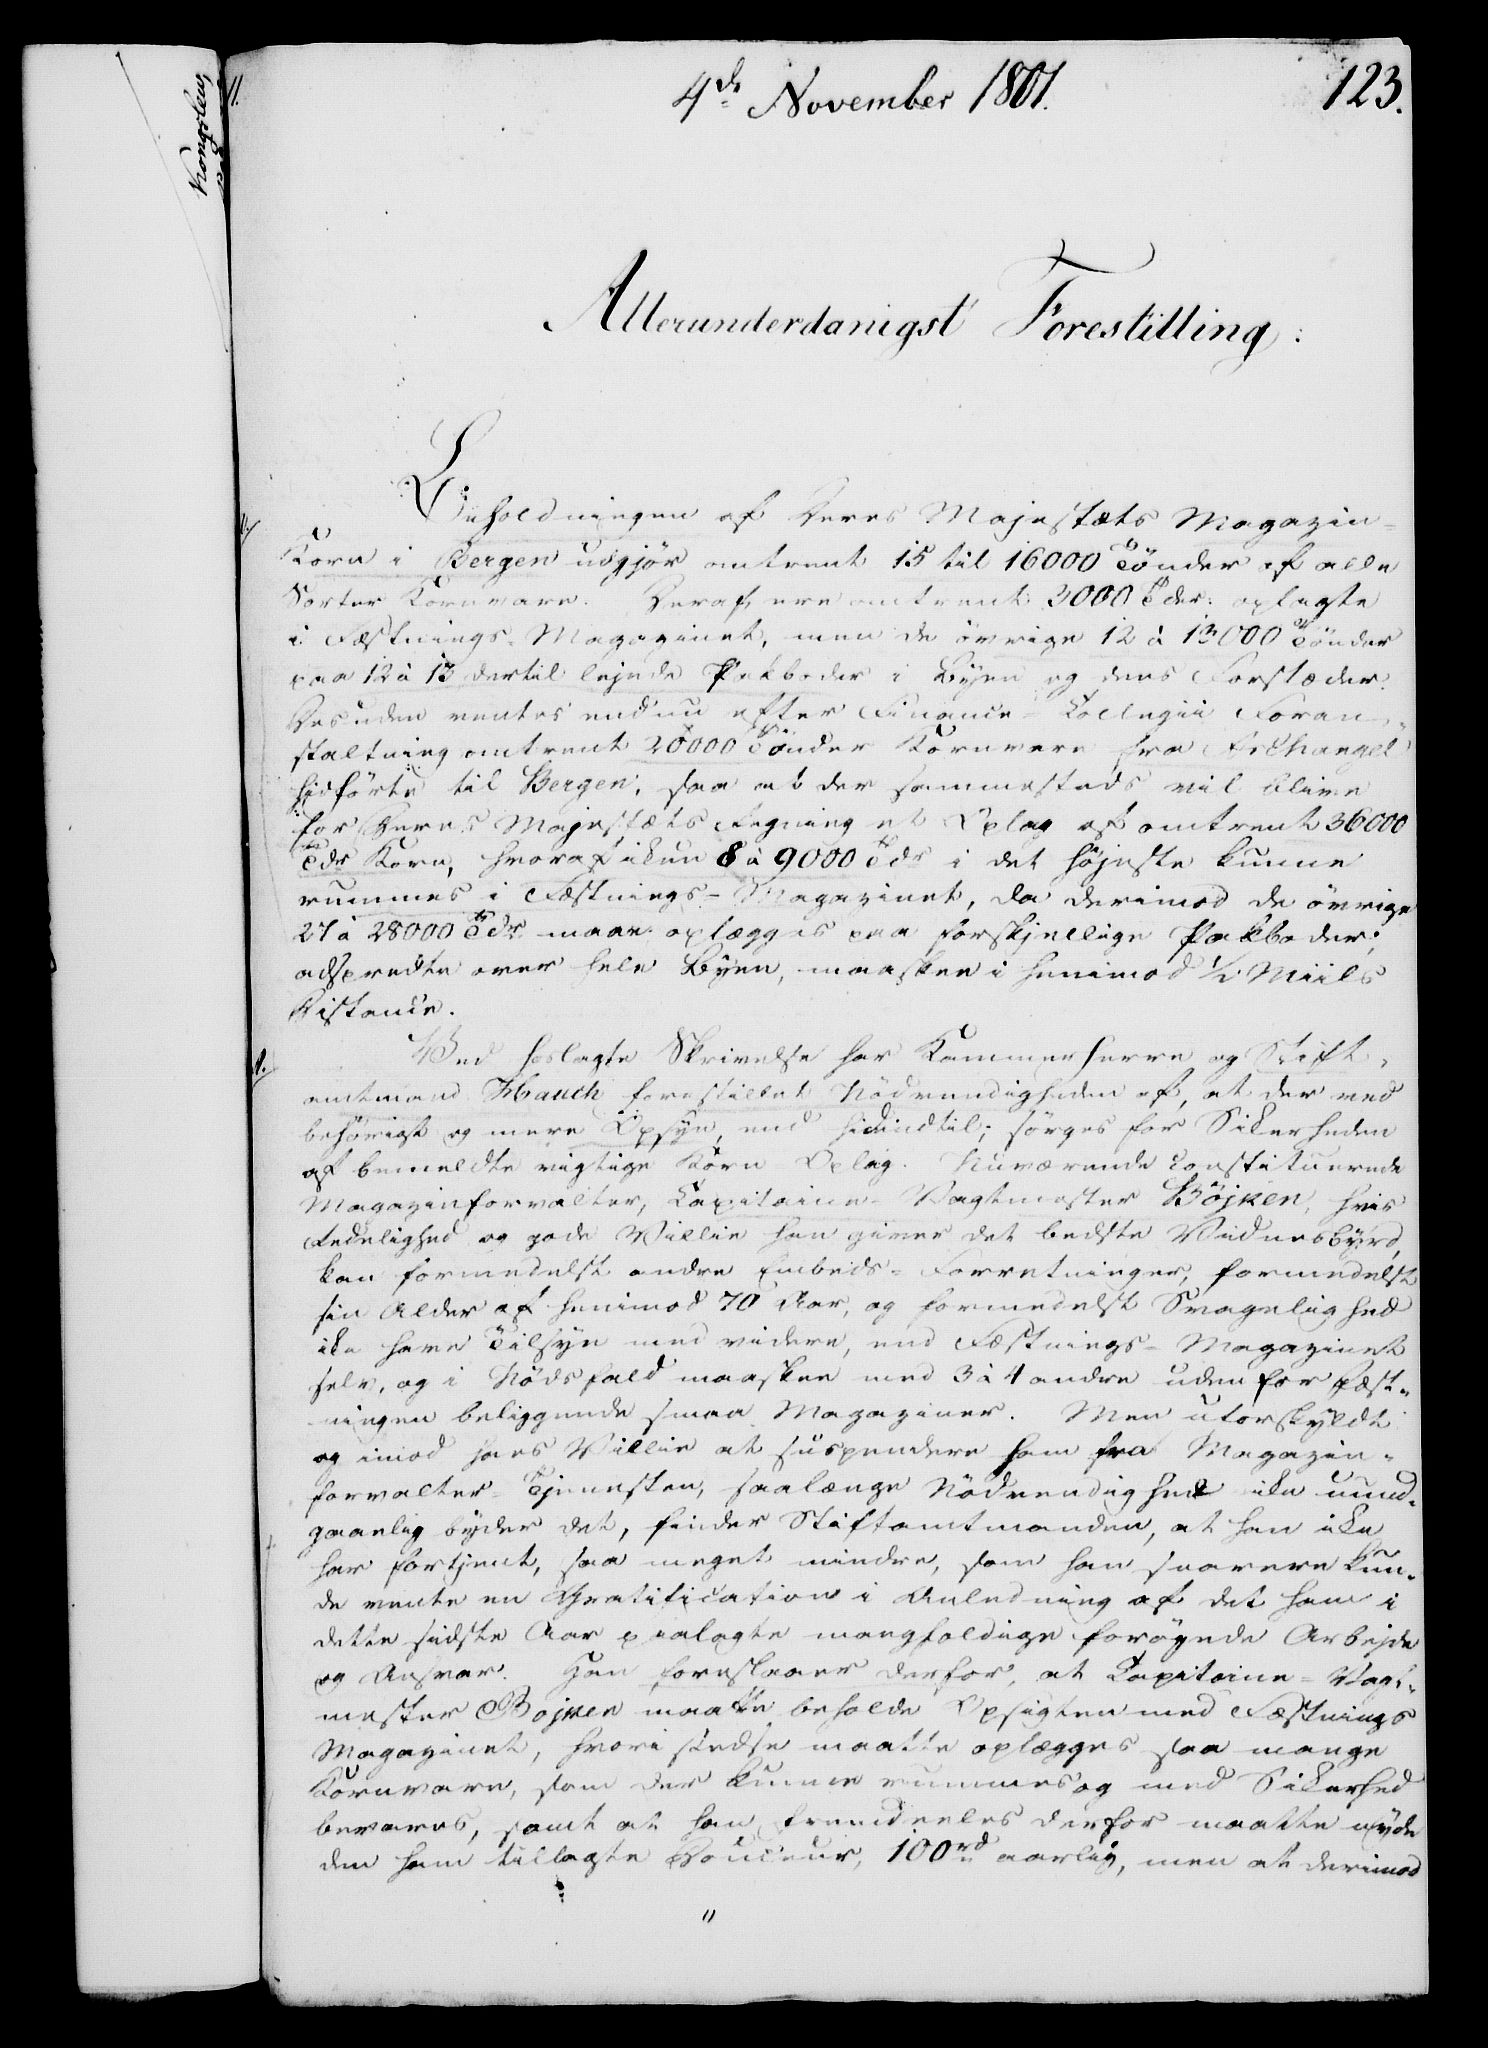 4de November 1801.
123.
Allerunderdanigst Forestilling.
Beholdningen af Deres Majestæts Magazin-
Korn i Bergen udgjør omtrent 15 til 16000 Tønder af alle
Sorter Kornvare. Deraf ere omtrent 3000 Tdr. oplagte
i Fæstnings-Magazinet, men de øvrige 12 à 13000 Tønder
paa 12 à 13 dertil lejede Pakboder i Byen og dens Forstæder.
Desuden ventes endnu efter Finance-Collegii Foran-
staltning omtrent 20000 Tønder Kornvare fra Archangel
hidførte til Bergen, saa at der sammesteds vil blive
for Deres Majestæts Regning et Oplag af omtrent 36000
Tdr Korn, hvoraf ikun 8 à 9000 Tdr i det højeste kunne
rummes i Fæstnings-Magazinet, da derimod de øvrige
27 à 28000 Tdr maae oplægges paa forskjellige Pakboder,
adspredte over hele Byen, maaskee i henimod 1/2 Miils
Distance.
Ved hoslagte Skrivelse har Kammerherre og Stift-
amtmand Hauch forestillet Nødvendigheden af, at der ved
behørigt og mere Opsyn, end hidindtil, sørges for Sikerheden
af bemeldte vigtige Korn-Oplag. Nuværende constituerede
Magazinforvalter, Capitaine-Vagtmester Böjsen, hvis
Redelighed og gode Villie han giver det bedste Vidnesbyrd,
kan formedelst andre Embeds-Forretninger, formedelst
sin Alder af henimod 70 Aar, og formedelst Svagelighed
ike have Tilsyn med videre, end Fæstnings-Magazinet
selv, og i Nødsfald maaskee med 3 à 4 andre udenfor Fæst-
ningen beliggende smaa Magaziner. Men uforskyldt
og imod hans Villie at suspendere ham fra Magazin-
forvalter-Tjenesten, saalænge Nødvendighed ike uund-
gaaelig byder det, finder Stiftamtmanden, at han ike
har fortjent, saa meget mindre, som han snarere kun-
de vente en Gratification i Anledning af det ham i
dette sidste Aar paalagte mangfoldige forøgede Arbejde
og Ansvar. Han foreslaaer derfor, at Capitaine-Vagt-
mester Bojsen maatte beholde Opsigten med Fæstnings
Magazinet, hvori stedse maatte oplægges saa mange
Kornvare, som der kunne rummes og med Sikerhed
bevares, samt at han fremdeeles derfor maatte nyde
den ham tillagte Douceur, 100 rd aarlig, men at derimod